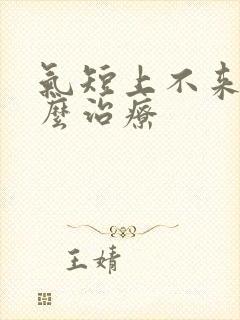 氣短上不来
麼治療
王婧